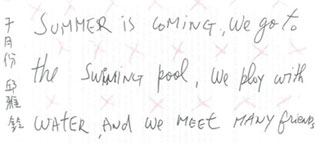 SUMMER is COMING, We go to
the SWIMING pool, We play with
WATER, AND We MEET MANY friends
邱雅鈴